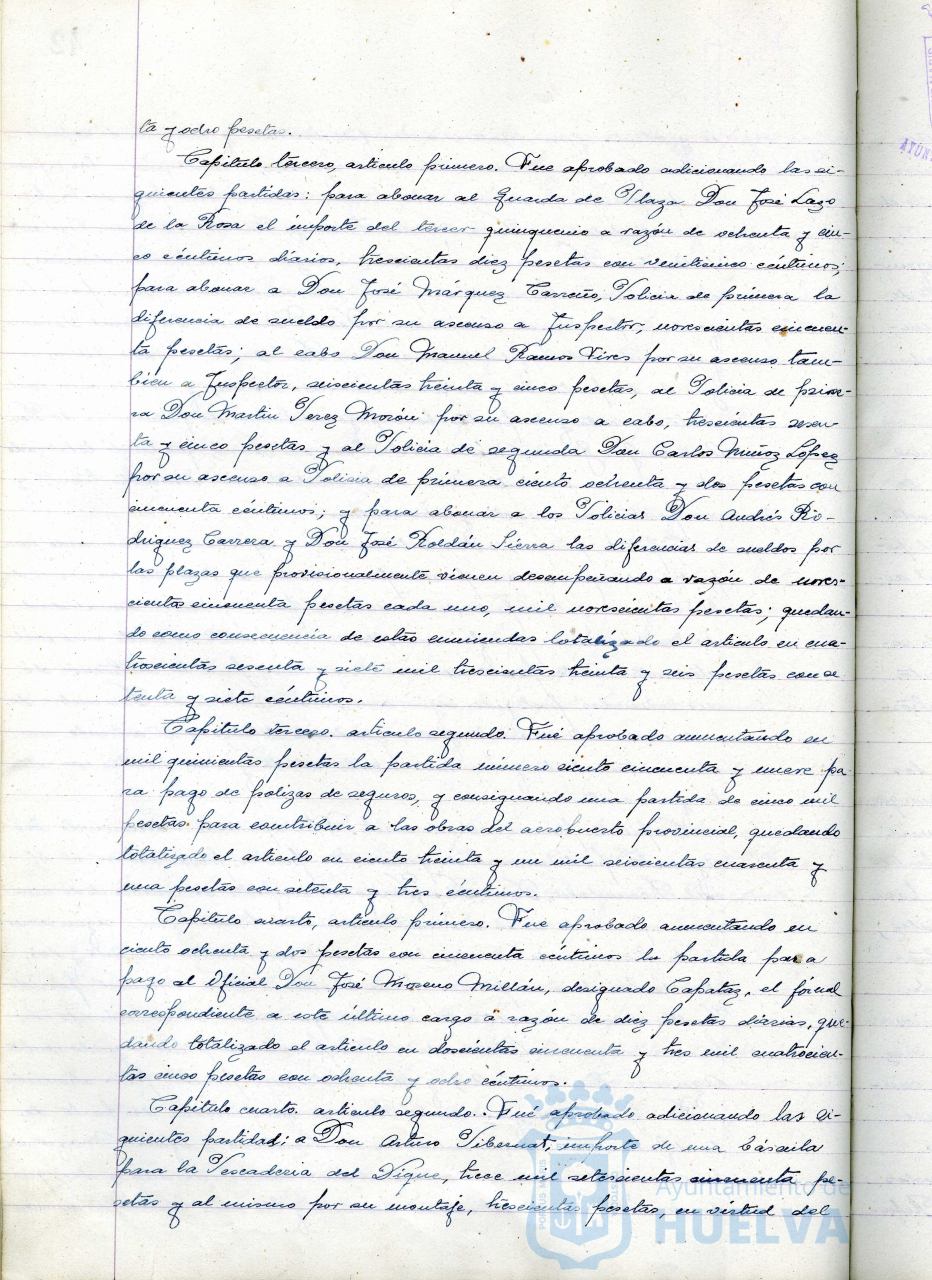 ta y ocho pesetas.
Capitulo tercero, articulo primero. Fue aprobado adicionando las si-
guientes partidas: para abonar al Guarda de Plaza Don José Lazo
de la Rosa el importe del tercer quinquenio a razón de ochenta y cin-
co céntimos diarios, trescientas diez pesetas con veinticinco céntimos;
para abonar a Don José Márquez Carreño, Policia de primera la
diferencia de sueldo por su ascenso a Inspector, novescientas cincuen-
ta pesetas; al cabo Don Manuel Ramos Vires por su ascenso tam-
bien a Inspector, seiscientas treinta y cinco pesetas, al Policia de prime-
ra Don Martin Perez Morón por su ascenso a cabo, trescientas sesen-
ta y cinco pesetas y al Policia de segunda Don Carlos Muñoz López
por su ascenso a Policia de primera ciento ochenta y dos pesetas con
cincuenta céntimos; y para abonar a los Policias Don Andrés Ro-
driguez Carrera y Don José Roldán Sierra las diferencias de sueldos por
las plazas que provisionalmente vienen desempeñando a razón de noves-
cientas cincuenta pesetas cada uno, mil novescientas pesetas; quedan-
do como consecuencia de estas enmiendas totalizado el articulo en cua-
troscientas sesenta y siete mil trescientas treinta y seis pesetas con se
tenta y siete céntimos.
Capitulo tercero. articulo segundo. Fué aprobado aumentando en
mil quinientas pesetas la partida número ciento cincuenta y nueve pa-
ra pago de polizas de seguros, y consignando una partida de cinco mil
pesetas para contribuir a las obras del aeropuerto provincial, quedando
totalizado el articulo en ciento treinta y un mil seiscientas cuarenta y
una pesetas con setenta y tres céntimos.
Capitulo cuarto, articulo primero. Fue aprobado aumentando en
ciento ochenta y dos pesetas con cincuenta céntimos la partida para
pago al Oficial Don José Moreno Millán, designado Capataz, el jornal
correspondiente a este último cargo a razón de diez pesetas diarias, que-
dando totalizado el articulo en doscientas cincuenta y tres mil cuatrocien-
tas cinco pesetas con ochenta y ocho céntimos.
Capitulo cuarto. articulo segundo. Fué aprobado adicionando las si-
guientes partidas: a Don Arturo Pibernat, importe de una báscula
para la Pescaderia del Dique, trece mil setescientas cincuenta pe-
setas y al mismo por su montaje, trescientas pesetas, en virtud del
Ayuntamiento de
HUELVA